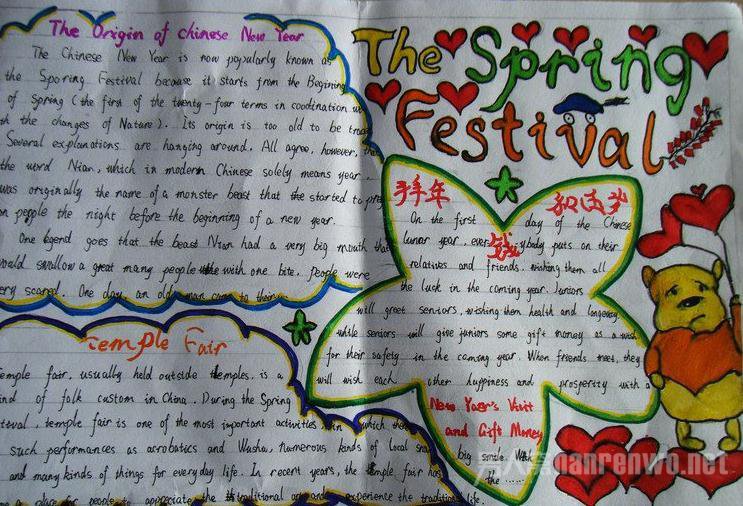 The Origin of Chinese New Year
The Chinese New Year is now popularly known as
the Sporing Festival because it starts from the Begining
of Spring (the first of the twenty-four terms in coodination
the changes of Nature). Its origin is too old to be
Several explanations are hanging around. All agree, however,
the word Nian, which in modern Chinese solely means year,
was originally the name of a monster beast that the started to
on people the night before the beginning of a new year.
One legend goes that the beast Nian had a very big mouth that
would swallow a great many people with one bite. People were
very scared. One day, an old man came to
Temple Fair
temple fair, usually held outside temples, is a
kind of folk custom in China. During the Spring
temple fair is one of the most important activities in which
such performances as acrobatics and Wushu, numerous kinds of local
and many kinds of things for everyday life. In recent years, the temple fair has
a place for people to appreciate the traditional art and experience the traditional life.
The Spring
Festival
拜年
和压岁
钱
On the first day of the Chinese
lunar year, everybody puts on their
relatives and friends, wishing them all
the luck in the coming year. Juniors
will greet seniors, wishing them health and longevity,
while seniors will give juniors some gift money as a wish
for their safety in the coming year. When friends meet, they
will wish each other happiness and prosperity with a
big smile. With
the ......
New Yaer's Visit
and Gift Money
nanrenwo.net